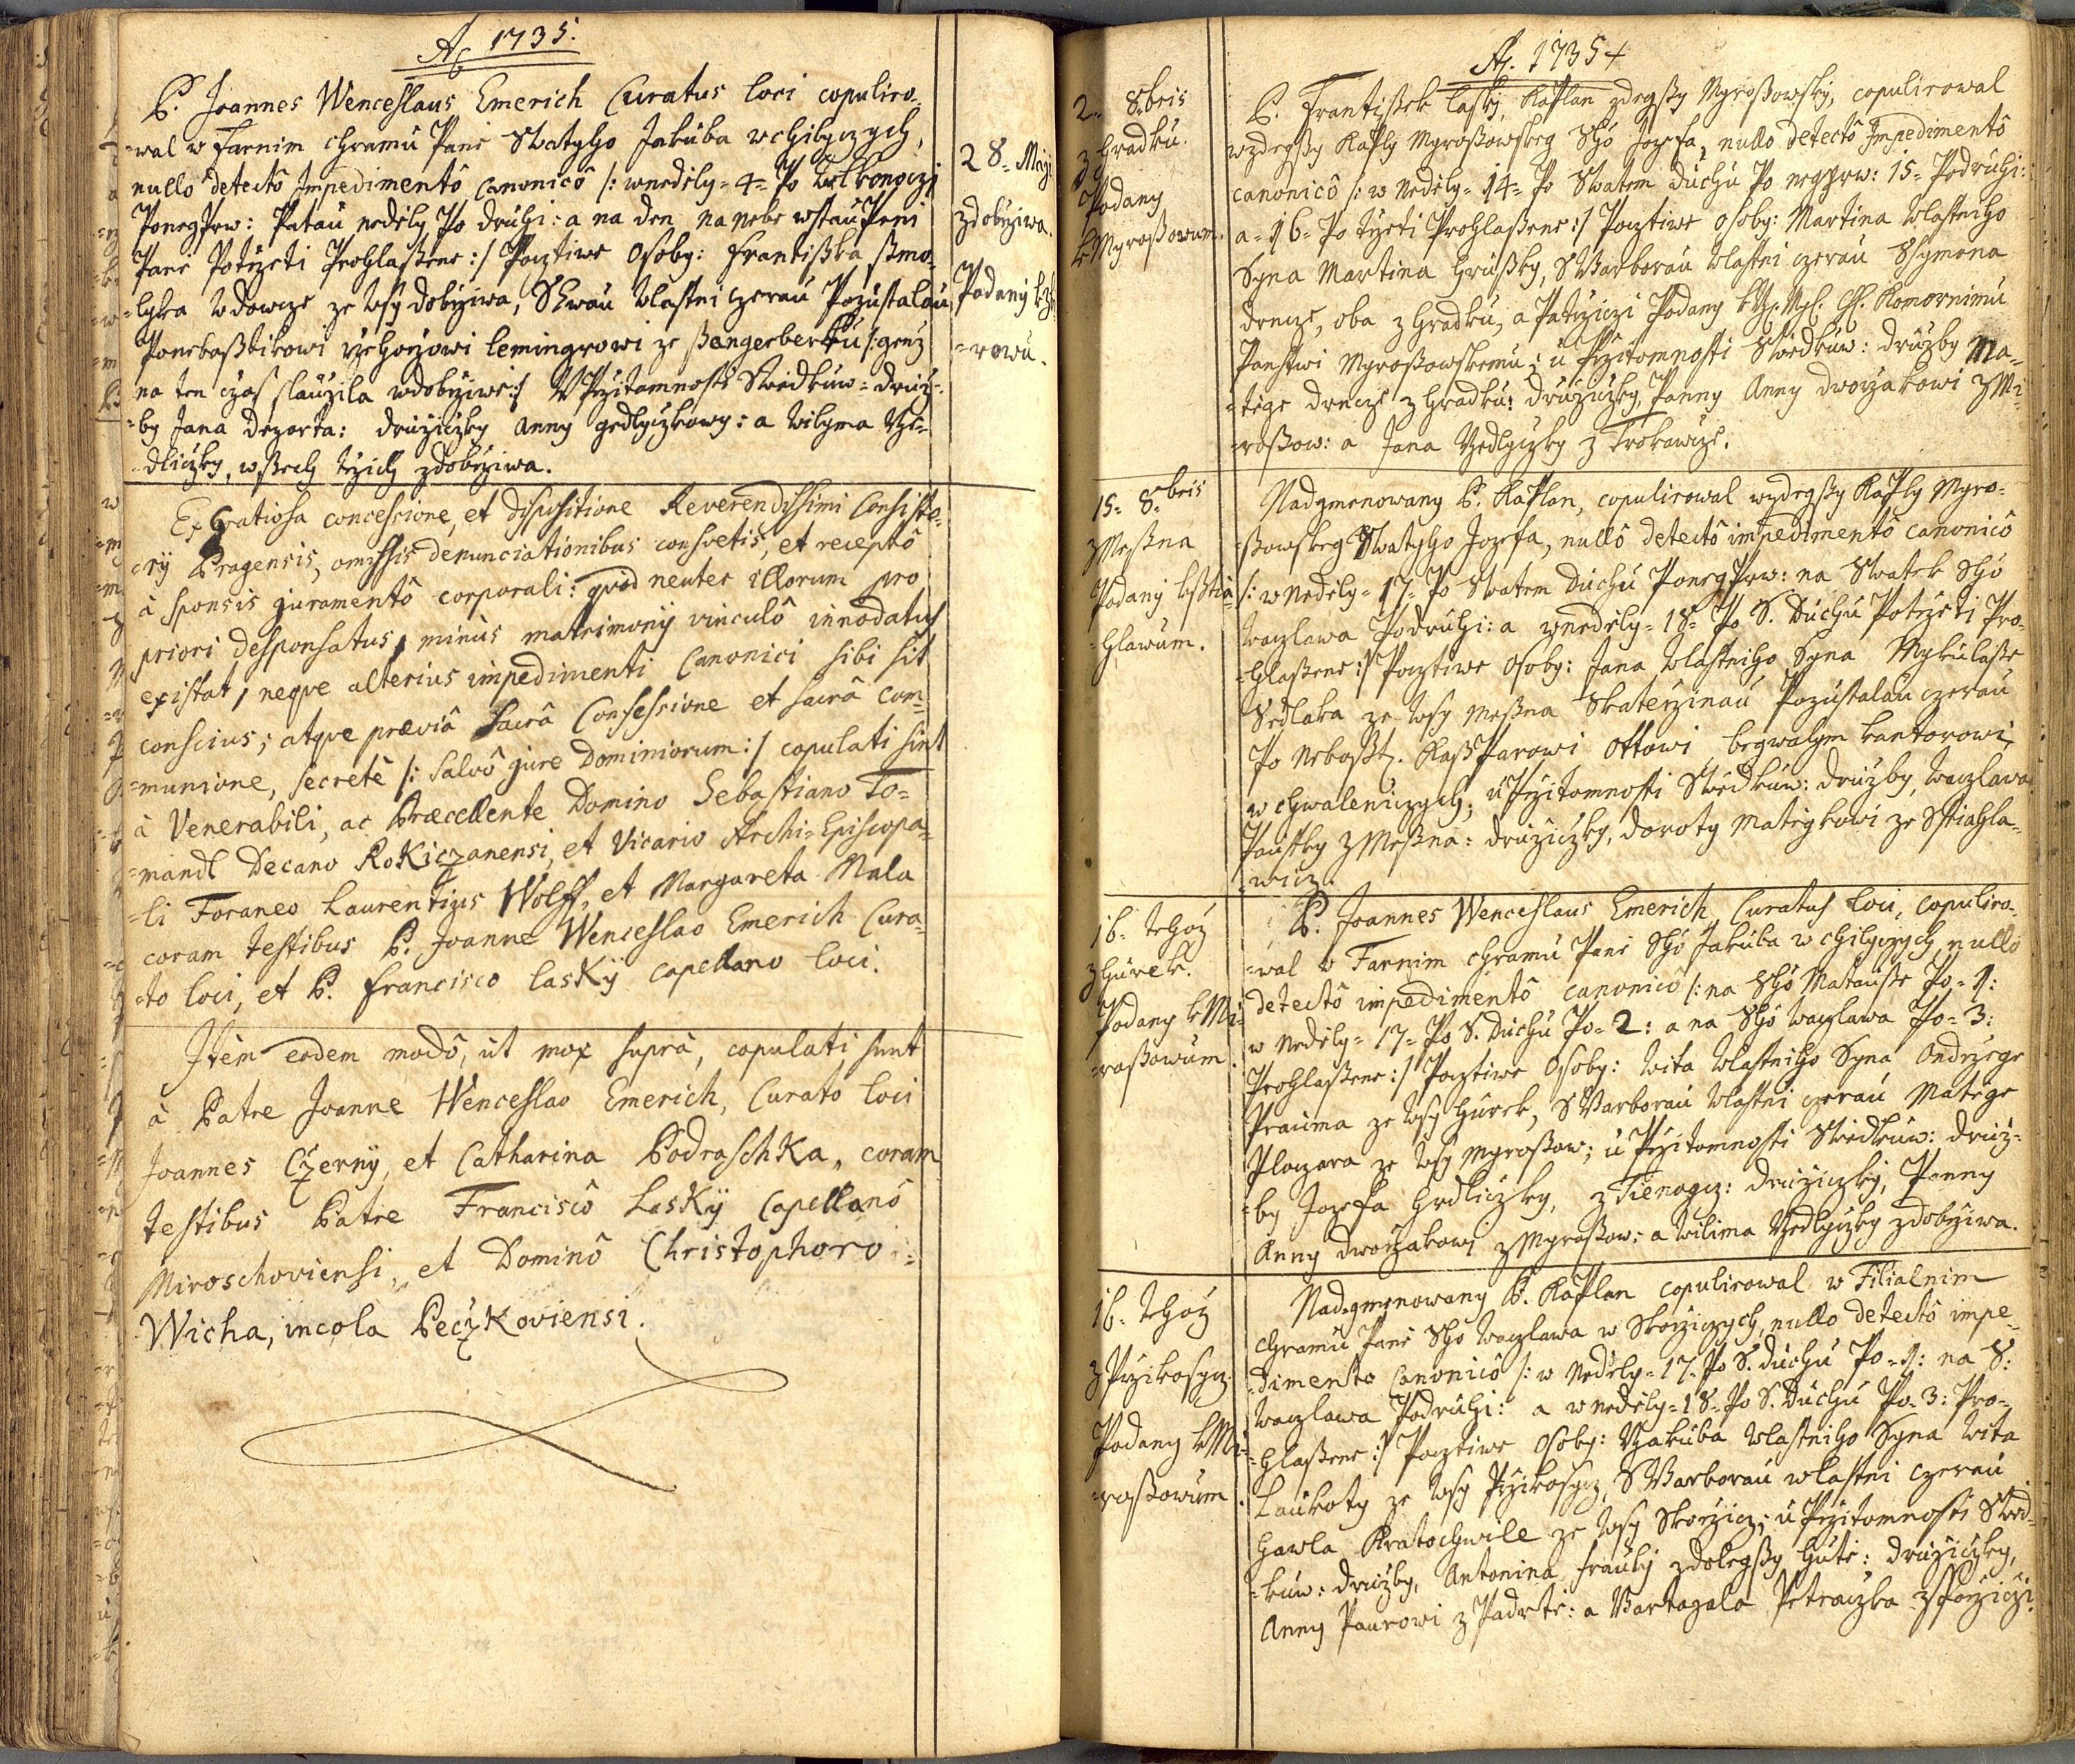 Aõ 1735.
P. Joannes Wenceslaus Emerich Curatus loci copuliro-
-wal w Farnim chramu Panie Swatyho Jakuba w Chylyczych,
nullô detectô Impedimentô Canonicô /: w nedėly = 4 = Po
Ponegprw: Patau nedėly Po druhi: a na den na nebe wstaupeni
Panie Potrzeti Prohlassene :/ Pocztiwe Osoby: Frantisska
-lyka wdowcze ze wsy dobrziwa, S Ewau wlastni czerau Pozustalau
Ponebosstikowi rzehorzowi Lemingrowi ze Ssengerberku /: genz
na ten czas slauzila w dobrziwie :/ U Przitomnosti Swiedkuw = druz-
-by Jana dezorta: druziczky Anny gedlyczkowy: a Wilyma Yge-
-dliczky, wssech trzich z dobrziwa.
28 = Maji
z dobrziwa.
Podany
-rowu.
Ex Gratiosa concessione, et dispositione Reverendissimi Consisto-
-rÿ Pragensis, omissis denunciationibus consvetis, et receptô
à sponsis juramentô corporali: qvod neuter illorum pro
priori desponsatus, minùs matrimonÿ vinculô innodatus
existat, neqve alterius impedimenti Canonici sibi sit
conscius; atqve præviâ sacrâ Confessione et sacrâ com-
-munione, secretè /: salvô jure Dominiorum :/ copulati sint
à Venerabili, ac Præcellente Domino Sebastiano To-
-mandl Decano Rokiczanensi, et Vicario Archi-Episcopa-
-li Foraneo Laurentius Wolff, et Margareta Mala
coram testibus P. Joanne Wenceslao Emerich Cura-
-to loci, et P. Francisco Laskÿ Capellano loci.
Itèm eodem modô, ut mox suprà, copulati sunt
à Patre Joanne Wenceslao Emerich, Curato loci
Joannes Czernÿ, et Catharina Podraschka, coram
testibus Patre Franciscô Laskÿ Capellanô
Miroschoviensi, et Dominô Christophoro
Wicha, incola Peczkoviensi.
Aõ. 1735
2 = 8bris
z Hradku.
Podany
k Myrossowum.
P. Frantissek Laskÿ, Kaplan zdegssy Myrossowsky, copulirowal
w zdegssy Kaply Myrossowskey Sho Jozefa, nullo detectô Impedimentô
canonicô /: w Nedėly = 14 = Po Swatem Duchu Po negprw: 15 = Podruhi:
a = 16 = Po trzeti Prohlassene :/ Pocztiwe Osoby: Martina wlastniho
Syna Martina Hrussky, S Barborau wlastni czerau Ssymona
drncze, oba z Hradku, a Patrziczi Podany k
Panstwi Myrossowskemu; u Przitomnosti Swedkuw: druzby Ma-
-tege drncze z Hradku: druziczky, Panny Anny dworzakowi z Mi-
-rossow: a Jana Yedlyczky z Trokawcze.
15 = 8bris
z Messna
Podany k Sstia-
-hlawum.
Nadgmenowany P. Kaplan, copulirowal w zdegssy Kaply Myro-
-ssowskey Swatyho Jozefa, nullô detectô impedimentô canonicô
/: w Nedėly = 17 = Po Swatem Duchu Ponegprw: na Swatek Sho
Waczlawa Podruhi: a w nedėly = 18 = Po S. Duchu Potrzeti Pro-
-hlassene :/ Pocztiwe Osoby: Jana wlastniho Syna Mykulasse
Sedlaka ze wsy Messna S Katerzinau Pozustalau czerau
Po Nebosst. Kassparowi Ottowi, begwalym kantorowi
w Chwaleniczych; u Przitomnosti Swėdkuw: druzby, Waczlawa
Paustky z Messna: druziczky, Doroty Mategkowi ze Sstiahla-
-wicz.
16 = tehoz
z Hurek.
Podany k Mi-
-rossowum.
P. Joannes Wenceslaus Emerich, Curatus loci, copuliro-
-wal w Farnim chramu Panie Sho Jakuba w Chylyczych, nullô
detectô impedimentô canonicô /: na Sho Matausse Po = 1:
w nedėly = 17 = Po S. Duchu Po = 2: a na Sho Waczlawa Po = 3:
Prohlassene :/ Pocztiwe Osoby: Wita wlastniho Syna Ondrzege
Prauma ze wsy Hurek, S Barborau wlastni czerau Matege
Placzara ze wsy Myrossow; u Przitomnosti Swiedkuw: druz-
-by Jozefa Hrdliczky, z Tienowicz: druziczky, Panny
Anny dworzakowi z Myrossow: a Wilima Yedlyczky z dobrziwa.
16 = tehoz
z Przikosycz
Podany k Mi-
-rossowum.
Nadgmenowany P. Kaplan copulirowal w Filialnim
chramu Panie Sho Waczlawa w Skorziczych, nullo detectô impe-
-dimento Canonicô /: w Nedėly = 17 = Po S. Duchu Po = 1: na S:
Waczlawa Podruhi: a w nedėly = 18 = Po S. Duchu Po = 3: Pro-
-hlassene :/ Pocztiwe Osoby: Yakuba wlastniho Syna Wita
Laukoty ze wsy Przikosycz, S Barborau wlastni czerau
Hawla Kratochwile ze wsy Skorzicz; u Przitomnosti Swėd-
-kuw: druzby, Antonina z dolegssy Hutie: druziczky,
Anny Paurowi z Padrtė: a Bartogala Petraczka z